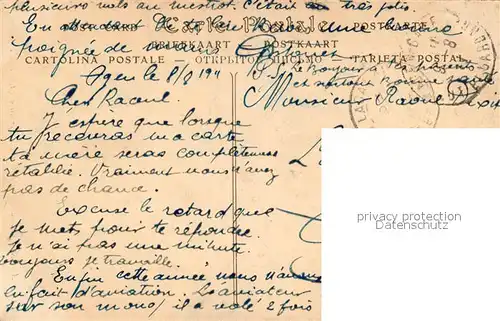 plusieurs vols au mistral. C'était très joli.
En attendant de te lire reçois une bonne
poignée de
Carte Postale
POSTKARTE
BRIEFKAART POSTKAART
CARTOLINA POSTALE - ОТКРЫТОЕ ПИСЬМО - TARJETA POSTAL
Agen le 8/8 1911
Le Bonjour à tes parents
et surtout bonne santé
Monsieur Raoul
Cher Raoul.
J'espère que lorsque
tu recevras ma carte
ta mère sera complètement
rétablie. Vraiment vous n'avez
pas de chance.
Excuse le retard que
je mets pour te répondre
Je n'ai pas une minute.
Toujours je travaille.
Enfin cette année nous
en fait d'aviation. L'aviateur
sur son mono, il a volé 2 fois
privacy protection
www.oldthing.de